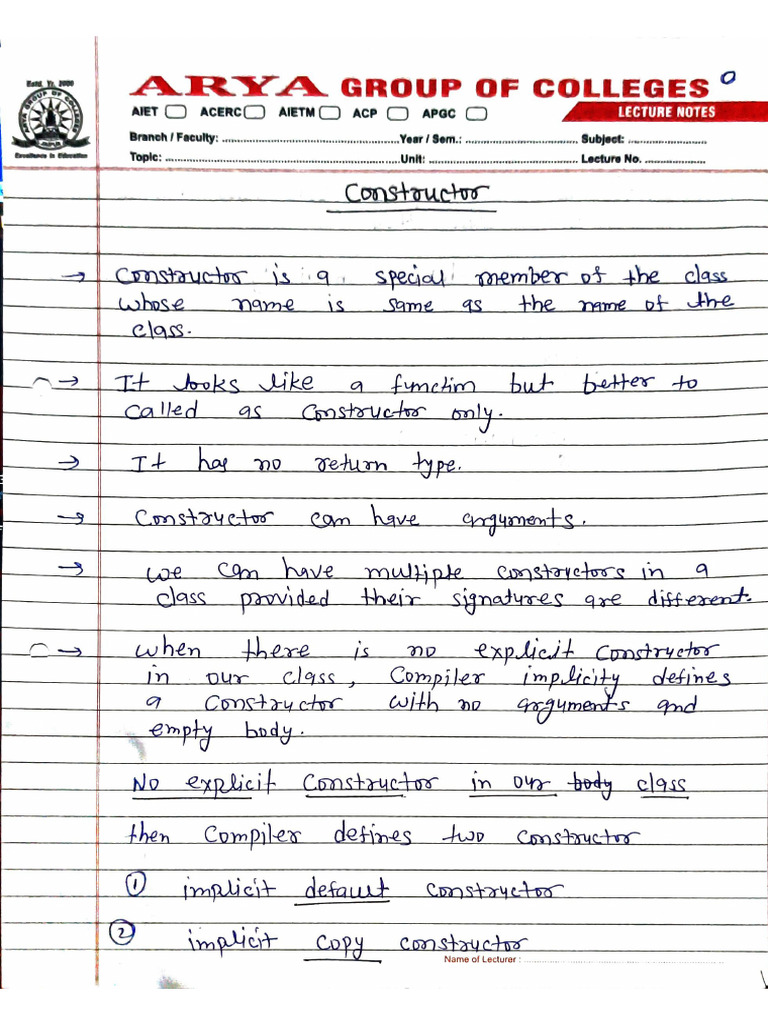 Estd. Yr. 2000
ARYA GROUP OF COLLEGES
ARYA GROUP OF COLLEGES
JAIPUR
Excellence in Education
AIET ACERC AIETM ACP APGC
LECTURE NOTES
Branch / Faculty: Year / Sem.: Subject:
Topic: Unit: Lecture No.
Constructor
→ Constructor is a special member of the class
whose name is same as the name of the
class.
→ It looks like a function but better to
called as Constructor only.
→ It has no return type.
→ Constructor can have arguments.
→ we can have multiple constructors in a
class provided their signatures are different.
→ when there is no explicit Constructor
in our class, Compiler implicity defines
a Constructor with no arguments and
empty body.
No explicit Constructor in our body class
then Compiler defines two Constructor
① implicit default Constructor
② implicit copy constructor
Name of Lecturer :